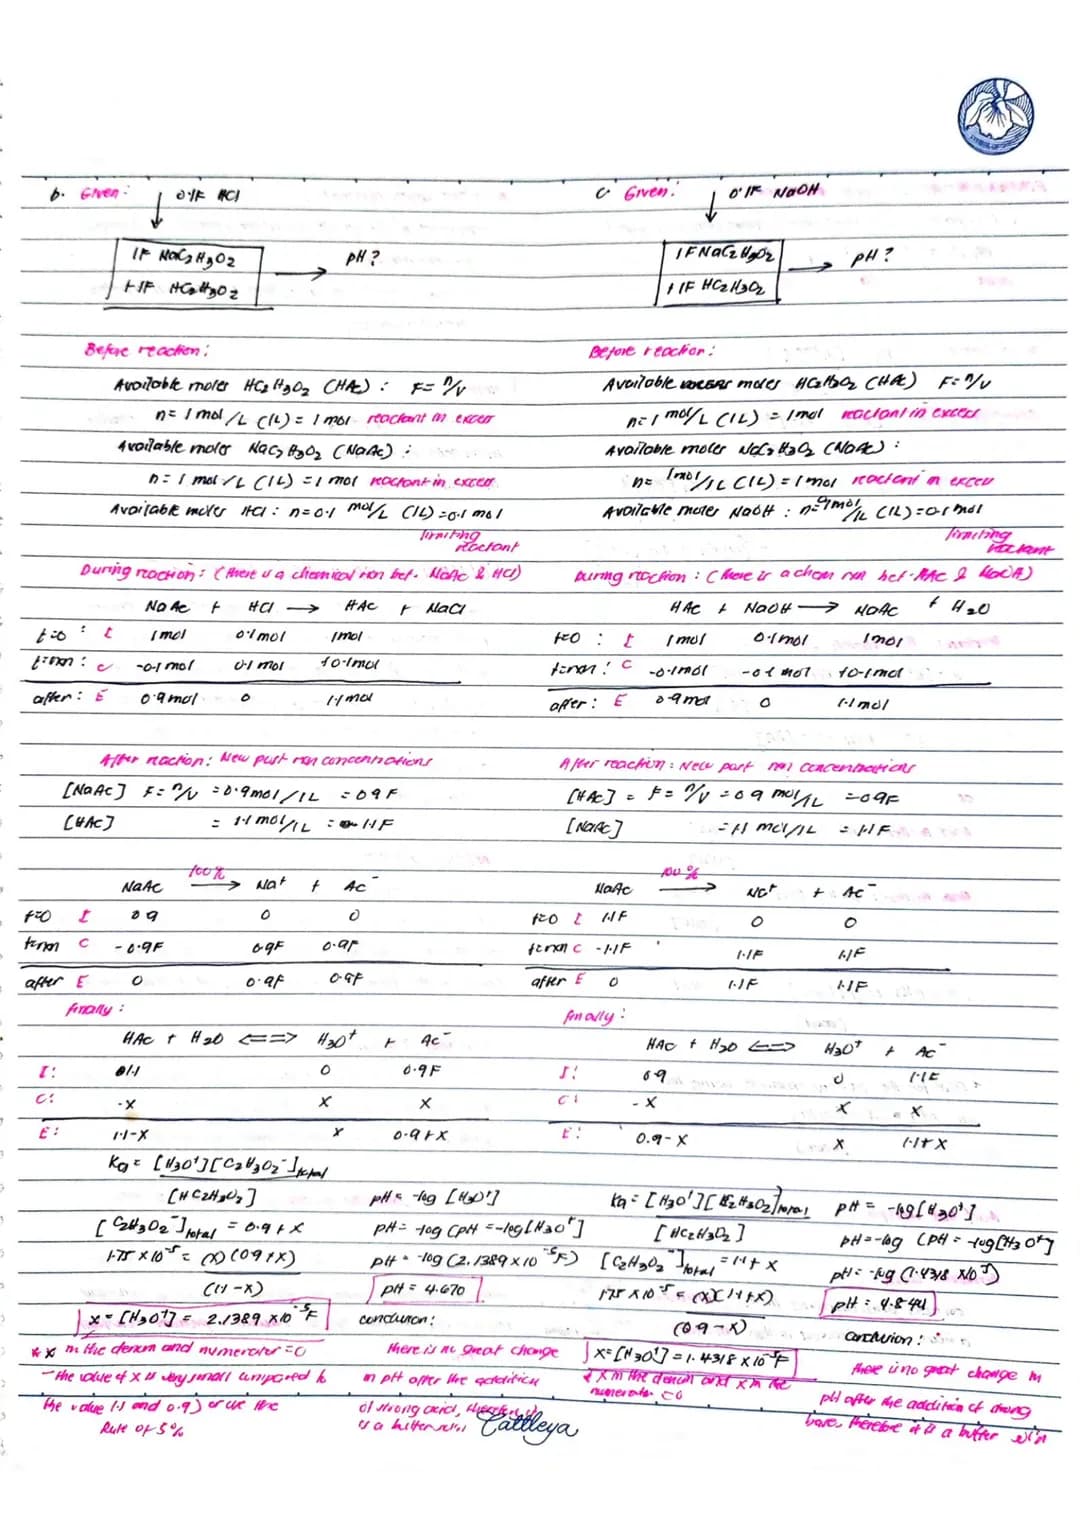 b. Given:
0.1F HCl
1F NaC2H3O2
1F HC2H3O2
pH?
Before reaction:
Available moles HC2H3O2 (HAc) : F= n/v
n= 1 mol/L (1L) = 1 mol reactant in excess
Available moles NaC2H3O2 (NaAc) :
n= 1 mol/L (1L) = 1 mol reactant in excess
Available moles HCl : n=0.1 mol/L (1L) =0.1 mol
limiting reactant
During reaction: (there is a chemical rxn bet. NaAc & HCl)
NaAc + HCl → HAc + NaCl
t=0 : I 1mol 0.1mol 1mol
t=rxn : C -0.1mol 0.1mol +0.1mol
after : E 0.9mol 0 1.1mol
After reaction: New post rxn concentrations
[NaAc] F= n/v =0.9mol/1L =0.9F
[HAc] = 1.1mol/1L = 1.1F
100%
NaAc → Na+ + Ac-
t=0 I 0.9 0 0
t=rxn C -0.9F 0.9F 0.9F
after E 0 0.9F 0.9F
finally :
HAc + H2O <==> H3O+ + Ac-
I: 0 0.9F
C: -x x x
E: 1.1-x x 0.9+x
Ka = [H3O+][C2H3O2-]total
[HC2H3O2]
[C2H3O2-]total = 0.9+x
1.75 x10-5 = (x)(0.9+x)
(1.1-x)
x = [H3O+] = 2.1389 x10-5F
** x in the denom and numerator =0
- the value of x is very small compared to
the value 1.1 and 0.9) or use the
Rule of 5%
pH = -log [H3O+]
pH = -log (pH = -log[H3O+]
pH = -log (2.1389 x10-5F)
pH = 4.670
conclusion:
there is no great change
in pH after the addition
of strong acid, therefore
is a buffer
c Given:
0.1F NaOH
1F NaC2H3O2
1F HC2H3O2
pH?
Before reaction:
Available moles HC2H3O2 (HAc) F= n/v
n=1 mol/L (1L) = 1mol reactant in excess
Available moles NaC2H3O2 (NaAc) :
n= 1mol/1L (1L) = 1mol reactant in excess
Available moles NaOH : n= 0.1mol/1L (1L) =0.1 mol
limiting reactant
During reaction : (there is a chem rxn bet. HAc & NaOH)
HAc + NaOH → NaAc + H2O
t=0 : I 1mol 0.1mol 1mol
t=rxn : C -0.1mol -0.1mol +0.1mol
after : E 0.9mol 0 1.1mol
After reaction : New post rxn concentrations
[HAc] = F= n/v =0.9 mol/1L =0.9F
[NaAc] =1.1 mol/1L = 1.1F
100%
NaAc → Na+ + Ac-
t=0 I 1.1F 0 0
t=rxn C -1.1F 1.1F 1.1F
after E 0 1.1F 1.1F
finally :
HAc + H2O <==> H3O+ + Ac-
I: 0.9 0 1.1F
C: -x x x
E: 0.9-x x 1.1+x
Ka = [H3O+][C2H3O2]total
[HC2H3O2]
[C2H3O2-]total = 1.1+x
1.75 x10-5 = (x)(1.1+x)
(0.9-x)
x=[H3O+] = 1.4318 x10-5F
* x in the denom and x in the
numerator =0
pH = -log[H3O+]
pH=-log (pH = -log[H3O+]
pH= -log (1.4318 x10-5)
pH = 4.844
conclusion :
there is no great change in
pH after the addition of strong
base, therefore it is a buffer sol'n
Cattleya